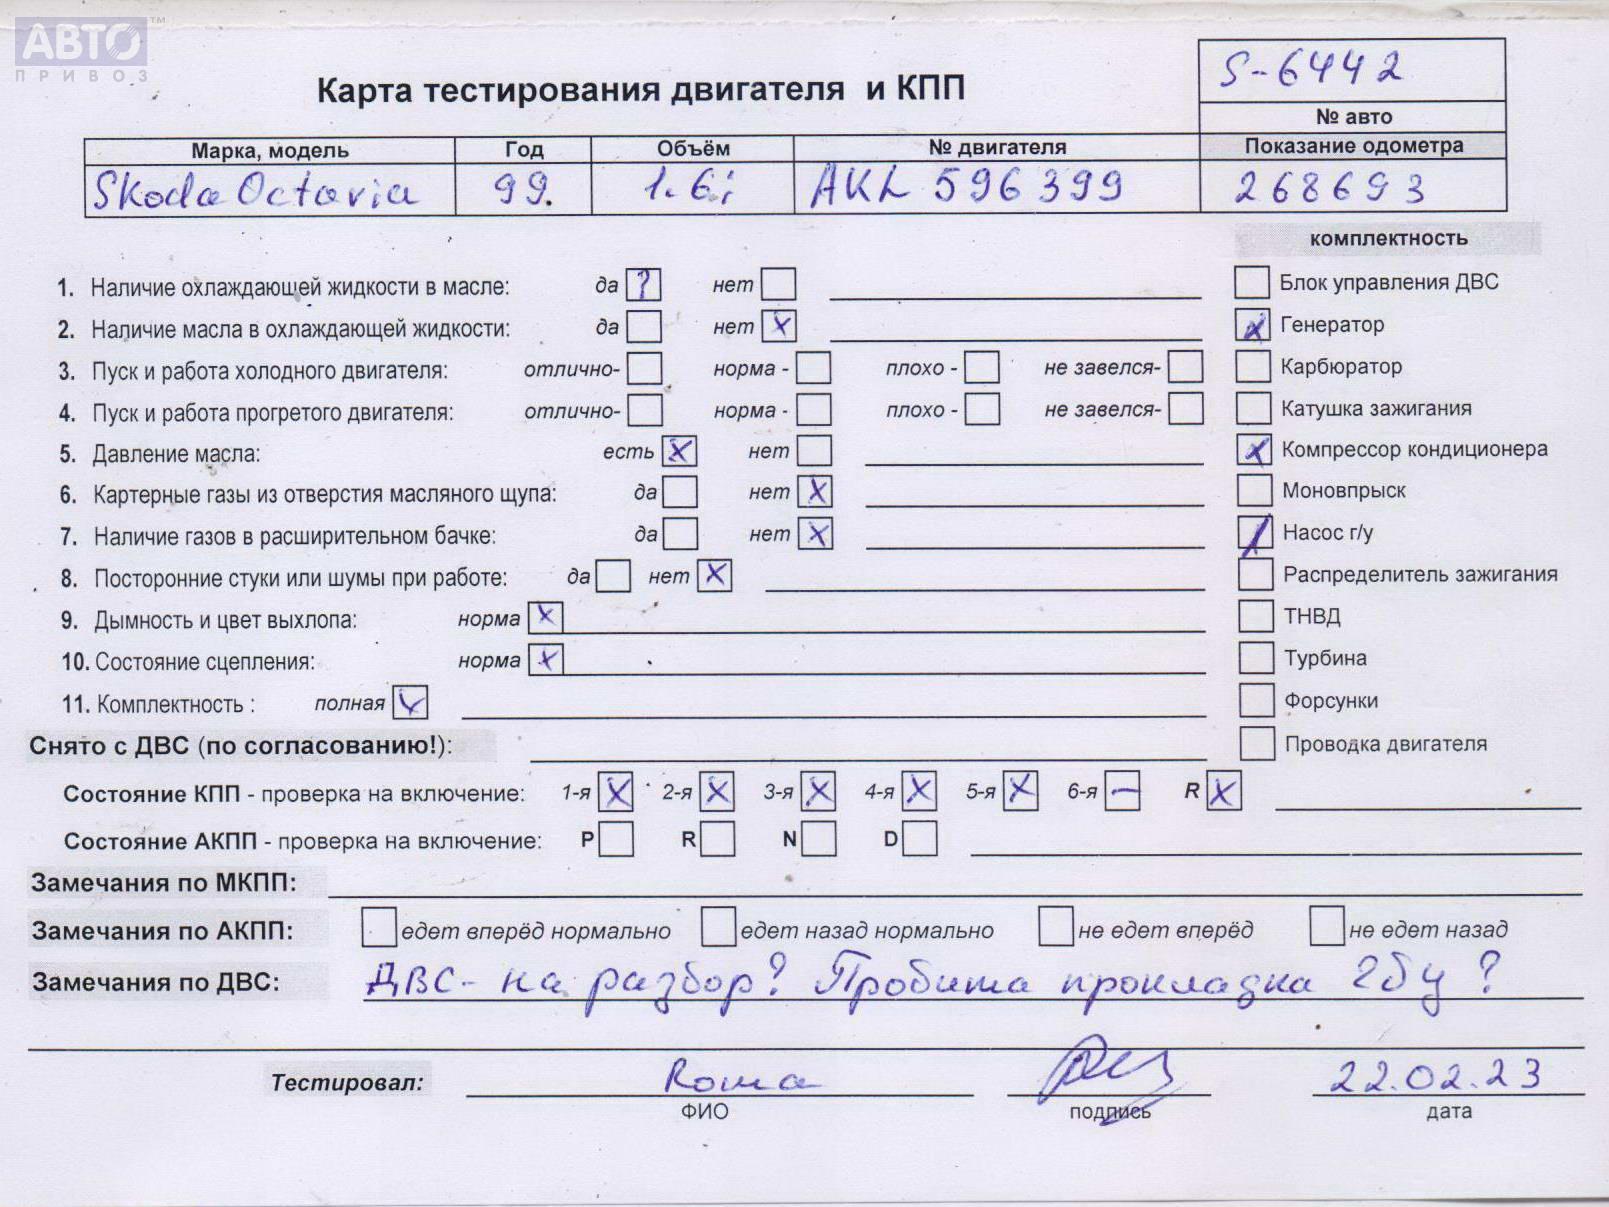 АВТО™
ПРИВОЗ
S-6442
Карта тестирования двигателя и КПП
№ авто
Марка, модель Год Объём № двигателя Показание одометра
Skoda Octavia 99. 1.6i AKL 596399 268693
комплектность
1. Наличие охлаждающей жидкости в масле: да ? нет
Блок управления ДВС
2. Наличие масла в охлаждающей жидкости: да нет x
Генератор
3. Пуск и работа холодного двигателя: отлично- норма - плохо - не завелся-
Карбюратор
4. Пуск и работа прогретого двигателя: отлично- норма - плохо - не завелся-
Катушка зажигания
5. Давление масла: есть x нет
Компрессор кондиционера
6. Картерные газы из отверстия масляного щупа: да нет x
Моновпрыск
7. Наличие газов в расширительном бачке: да нет x
Насос г/у
8. Посторонние стуки или шумы при работе: да нет x
Распределитель зажигания
9. Дымность и цвет выхлопа: норма x
ТНВД
10. Состояние сцепления: норма x
Турбина
11. Комплектность : полная
Форсунки
Снято с ДВС (по согласованию!):
Проводка двигателя
Состояние КПП - проверка на включение: 1-я x 2-я x 3-я x 4-я x 5-я x 6-я – R x
Состояние АКПП - проверка на включение: P R N D
Замечания по МКПП:
Замечания по АКПП: едет вперёд нормально едет назад нормально не едет вперёд не едет назад
Замечания по ДВС: ДВС - на разбор? Пробита прокладка гбц ?
Тестировал: Рома 22.02.23
ФИО подпись дата